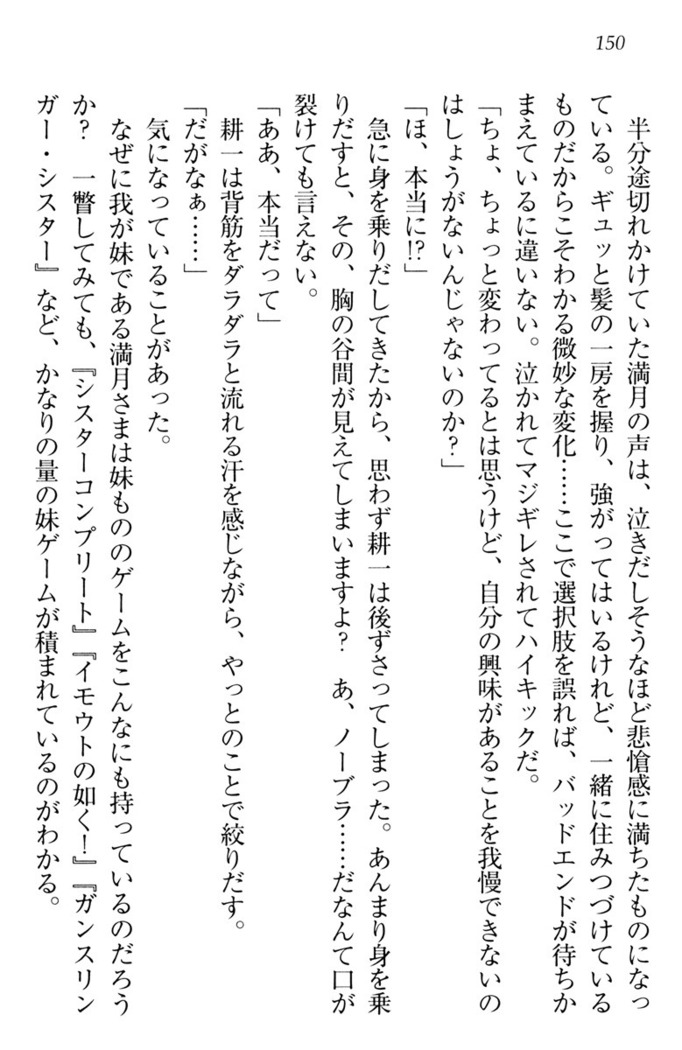 150
半分途切れかけていた満月の声は、泣きだしそうなほど悲愴感に満ちたものになっ
ている。ギュッと髪の一房を握り、強がってはいるけれど、一緒に住みつづけている
ものだからこそわかる微妙な変化……ここで選択肢を誤れば、バッドエンドが待ちか
まえているに違いない。泣かれてマジギレされてハイキックだ。
「ちょ、ちょっと変わってるとは思うけど、自分の興味があることを我慢できないの
はしょうがないんじゃないのか？」
「ほ、本当に!?」
急に身を乗りだしてきたから、思わず耕一は後ずさってしまった。あんまり身を乗
りだすと、その、胸の谷間が見えてしまいますよ？　あ、ノーブラ……だなんて口が
裂けても言えない。
「ああ、本当だって」
耕一は背筋をダラダラと流れる汗を感じながら、やっとのことで絞りだす。
「だがなぁ……」
気になっていることがあった。
なぜに我が妹である満月さまは妹もののゲームをこんなにも持っているのだろう
か？　一瞥してみても、『シスターコンプリート』『イモウトの如く！』『ガンスリン
ガー・シスター』など、かなりの量の妹ゲームが積まれているのがわかる。